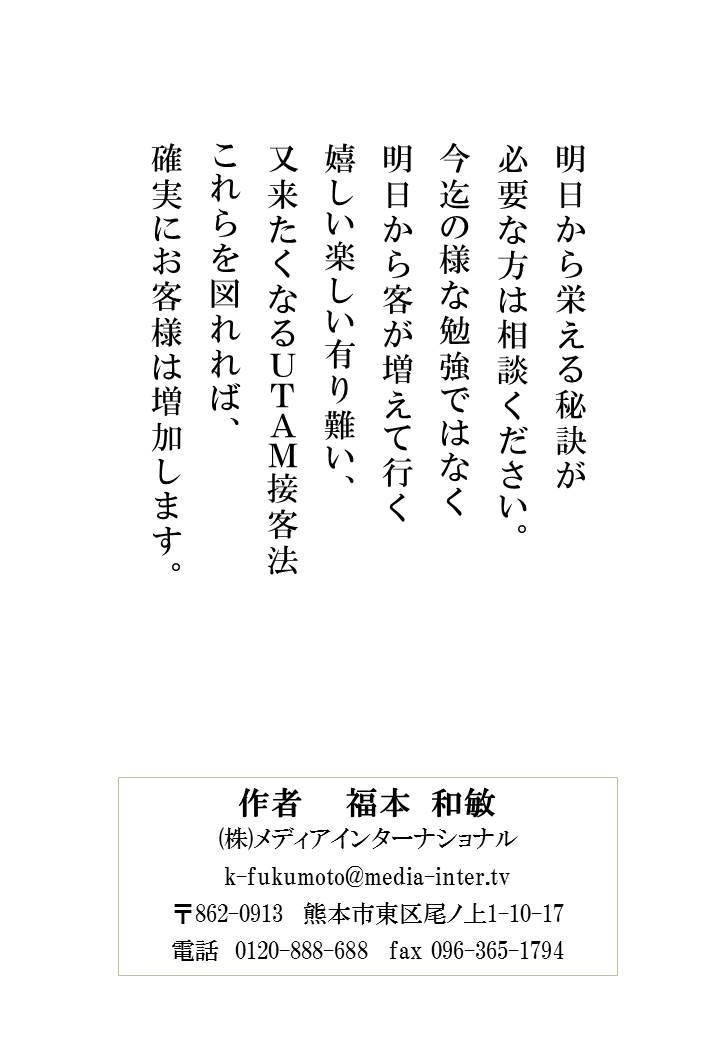 明日から栄える秘訣が
必要な方は相談ください。
今迄の様な勉強ではなく
明日から客が増えて行く
嬉しい楽しい有り難い、
又来たくなるUTAM接客法
これらを図れれば、
確実にお客様は増加します。
作者　福本　和敏
(株)メディアインターナショナル
k-fukumoto@media-inter.tv
〒862-0913　熊本市東区尾ノ上1-10-17
電話　0120-888-688　fax 096-365-1794